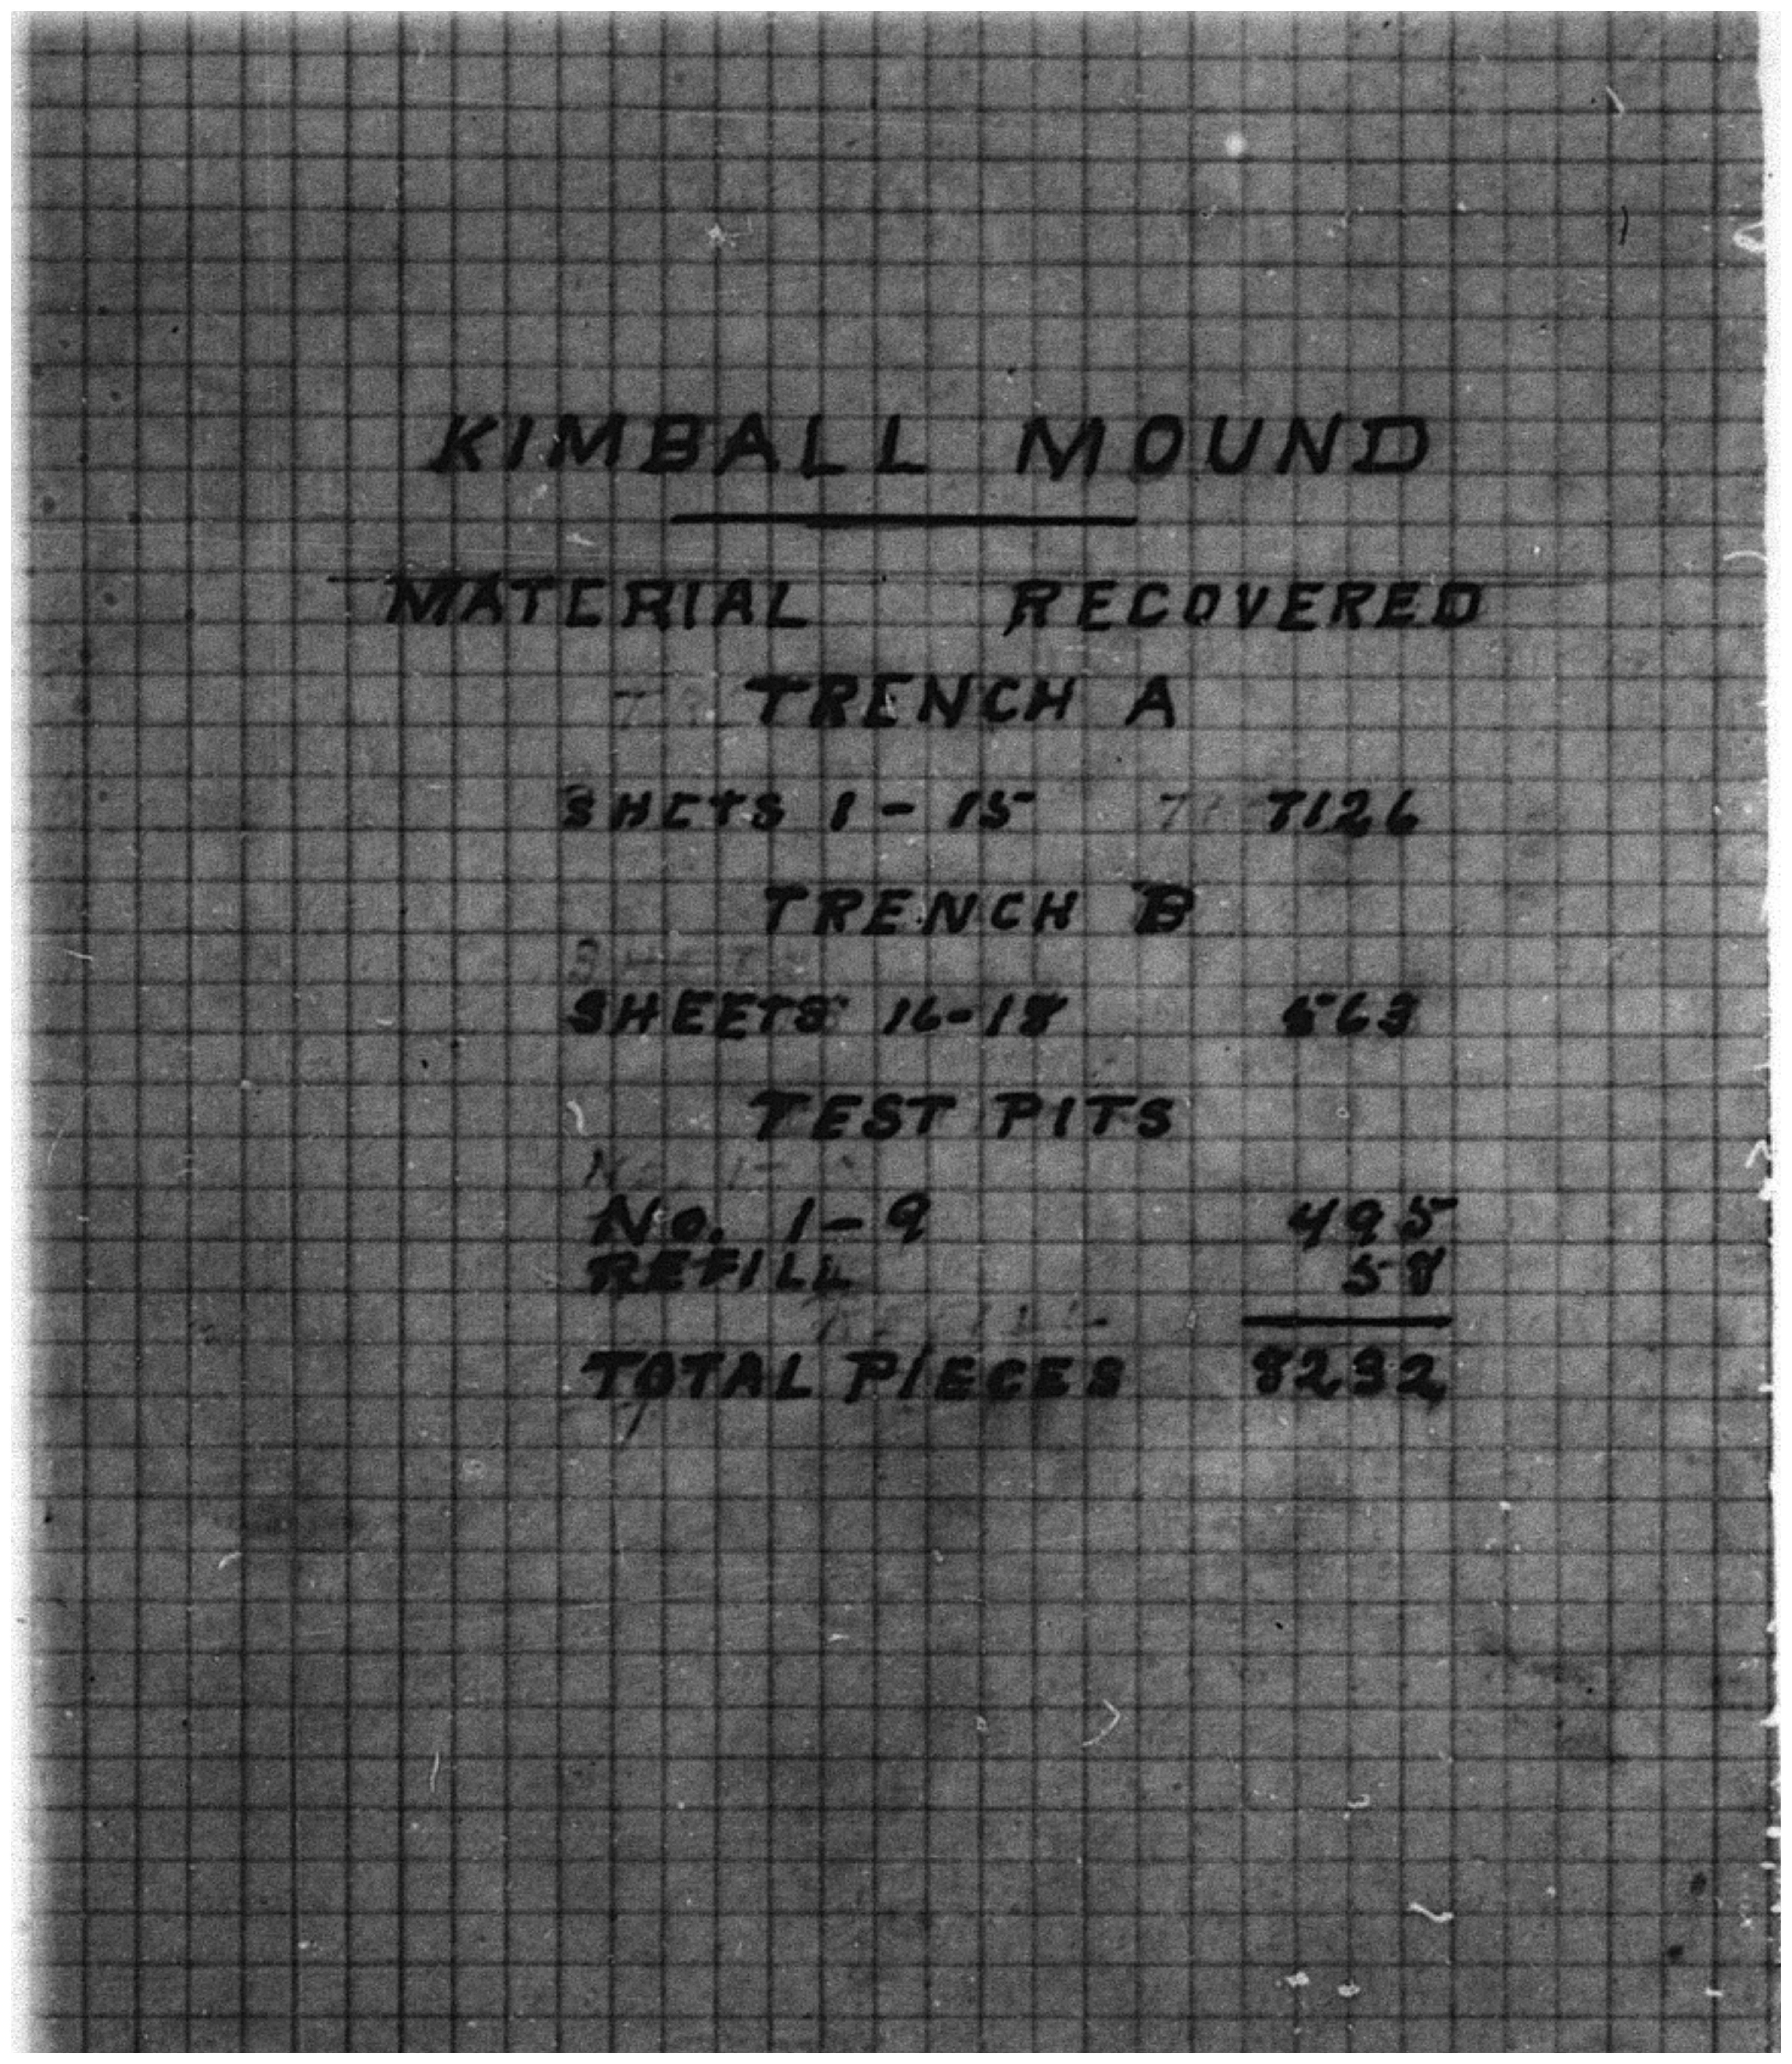 KIMBALL MOUND
MATERIAL RECOVERED
TRENCH A
SHETS 1 - 15 7126
TRENCH B
SHEETS 16-18 563
TEST PITS
No. 1-9 495
REFILL 58
REFILL
TOTAL PIECES 8232